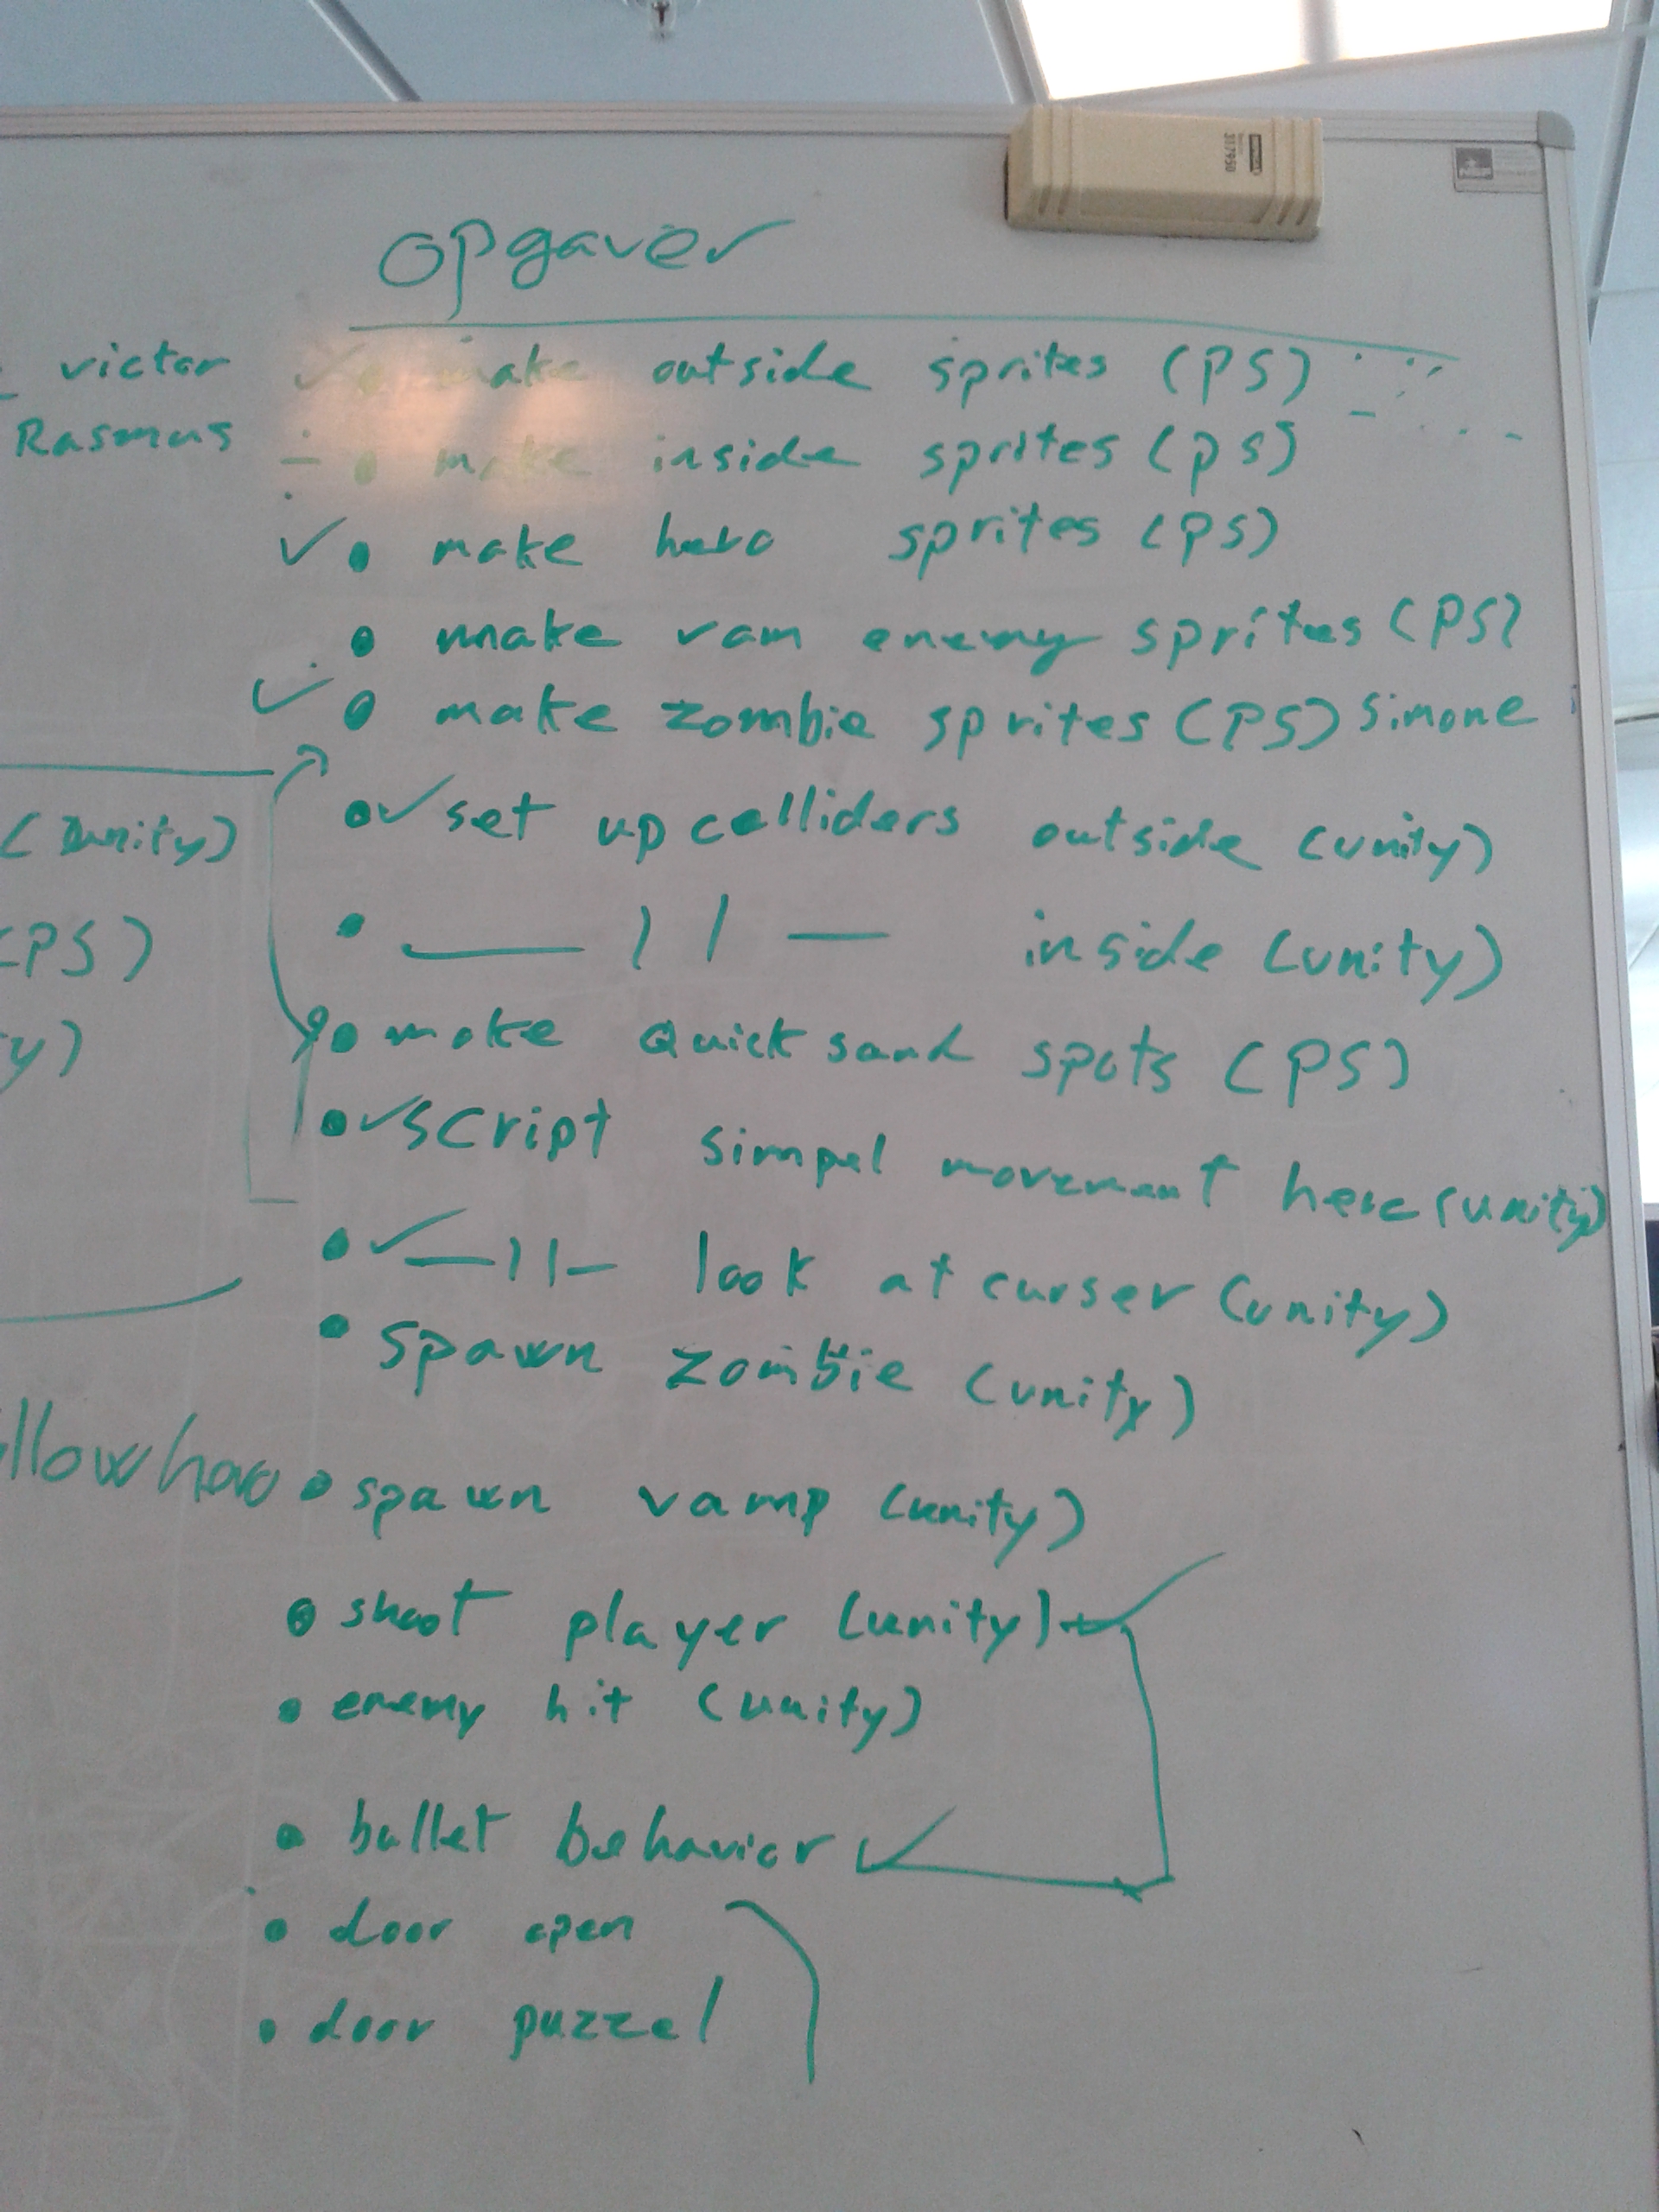 opgaver
victor make outside sprites (PS)
Rasmus make inside sprites (PS)
make hero sprites (PS)
make vam enemy sprites (PS)
make zombie sprites (PS) Simone
set up colliders outside (unity)
(unity)
— 11 — inside (unity)
(PS)
make Quick sand spots (PS)
script simpel movement hero (unity)
— 11 — look at curser (unity)
spawn zombie (unity)
spawn vamp (unity)
shoot player (unity)
enemy hit (unity)
bullet behavior
door open
door puzzel
317950